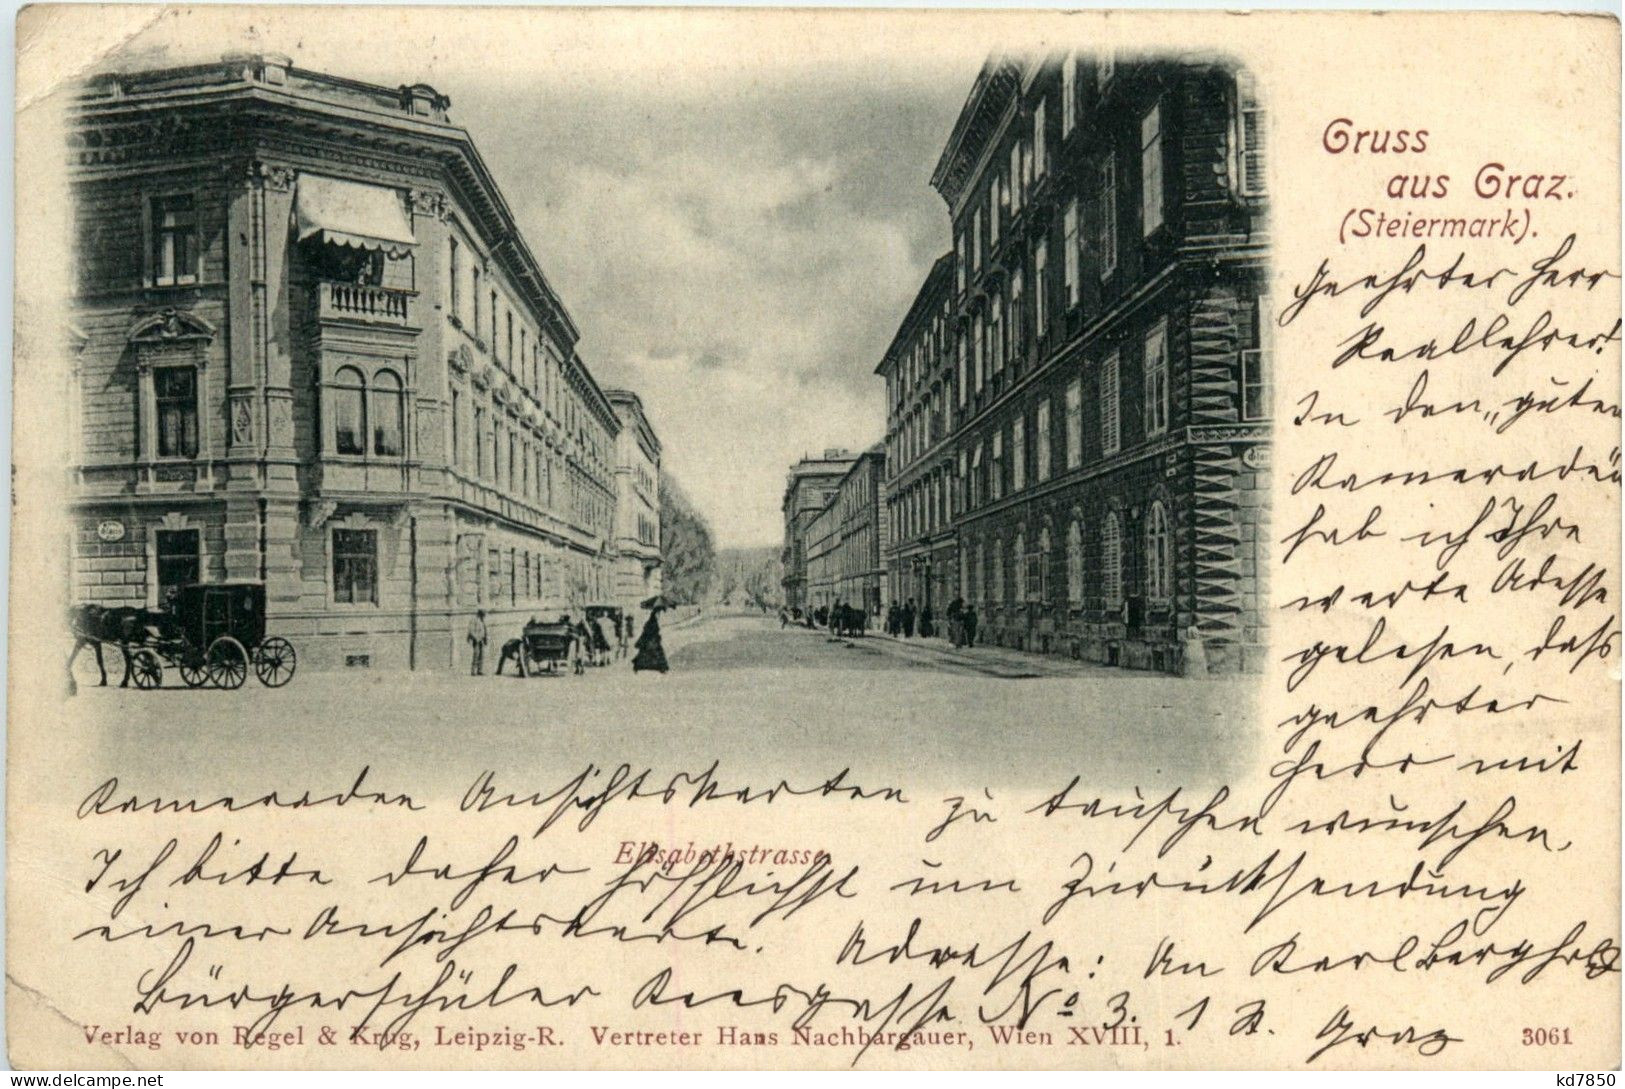 Gruss
aus Graz.
(Steiermark).
Geehrter Herr
Reallehrer!
In den „guten
Kameraden"
hab ich Ihre
werte Adesse
gelesen, dass
geehrter
Herr mit
Kameraden Ansichtskarten zu tauschen wünschen,
Elisabethstrasse
Ich bitte daher höfflichst um Zurücksendung
einer Ansichtskarte. Adresse: An Karl Berghold
Bürgerschüler Keesgasse No 3. 1 St. Graz
Verlag von Regel & Krug, Leipzig-R. Vertreter Hans Nachbargauer, Wien XVIII, 1. 3061
kd7850